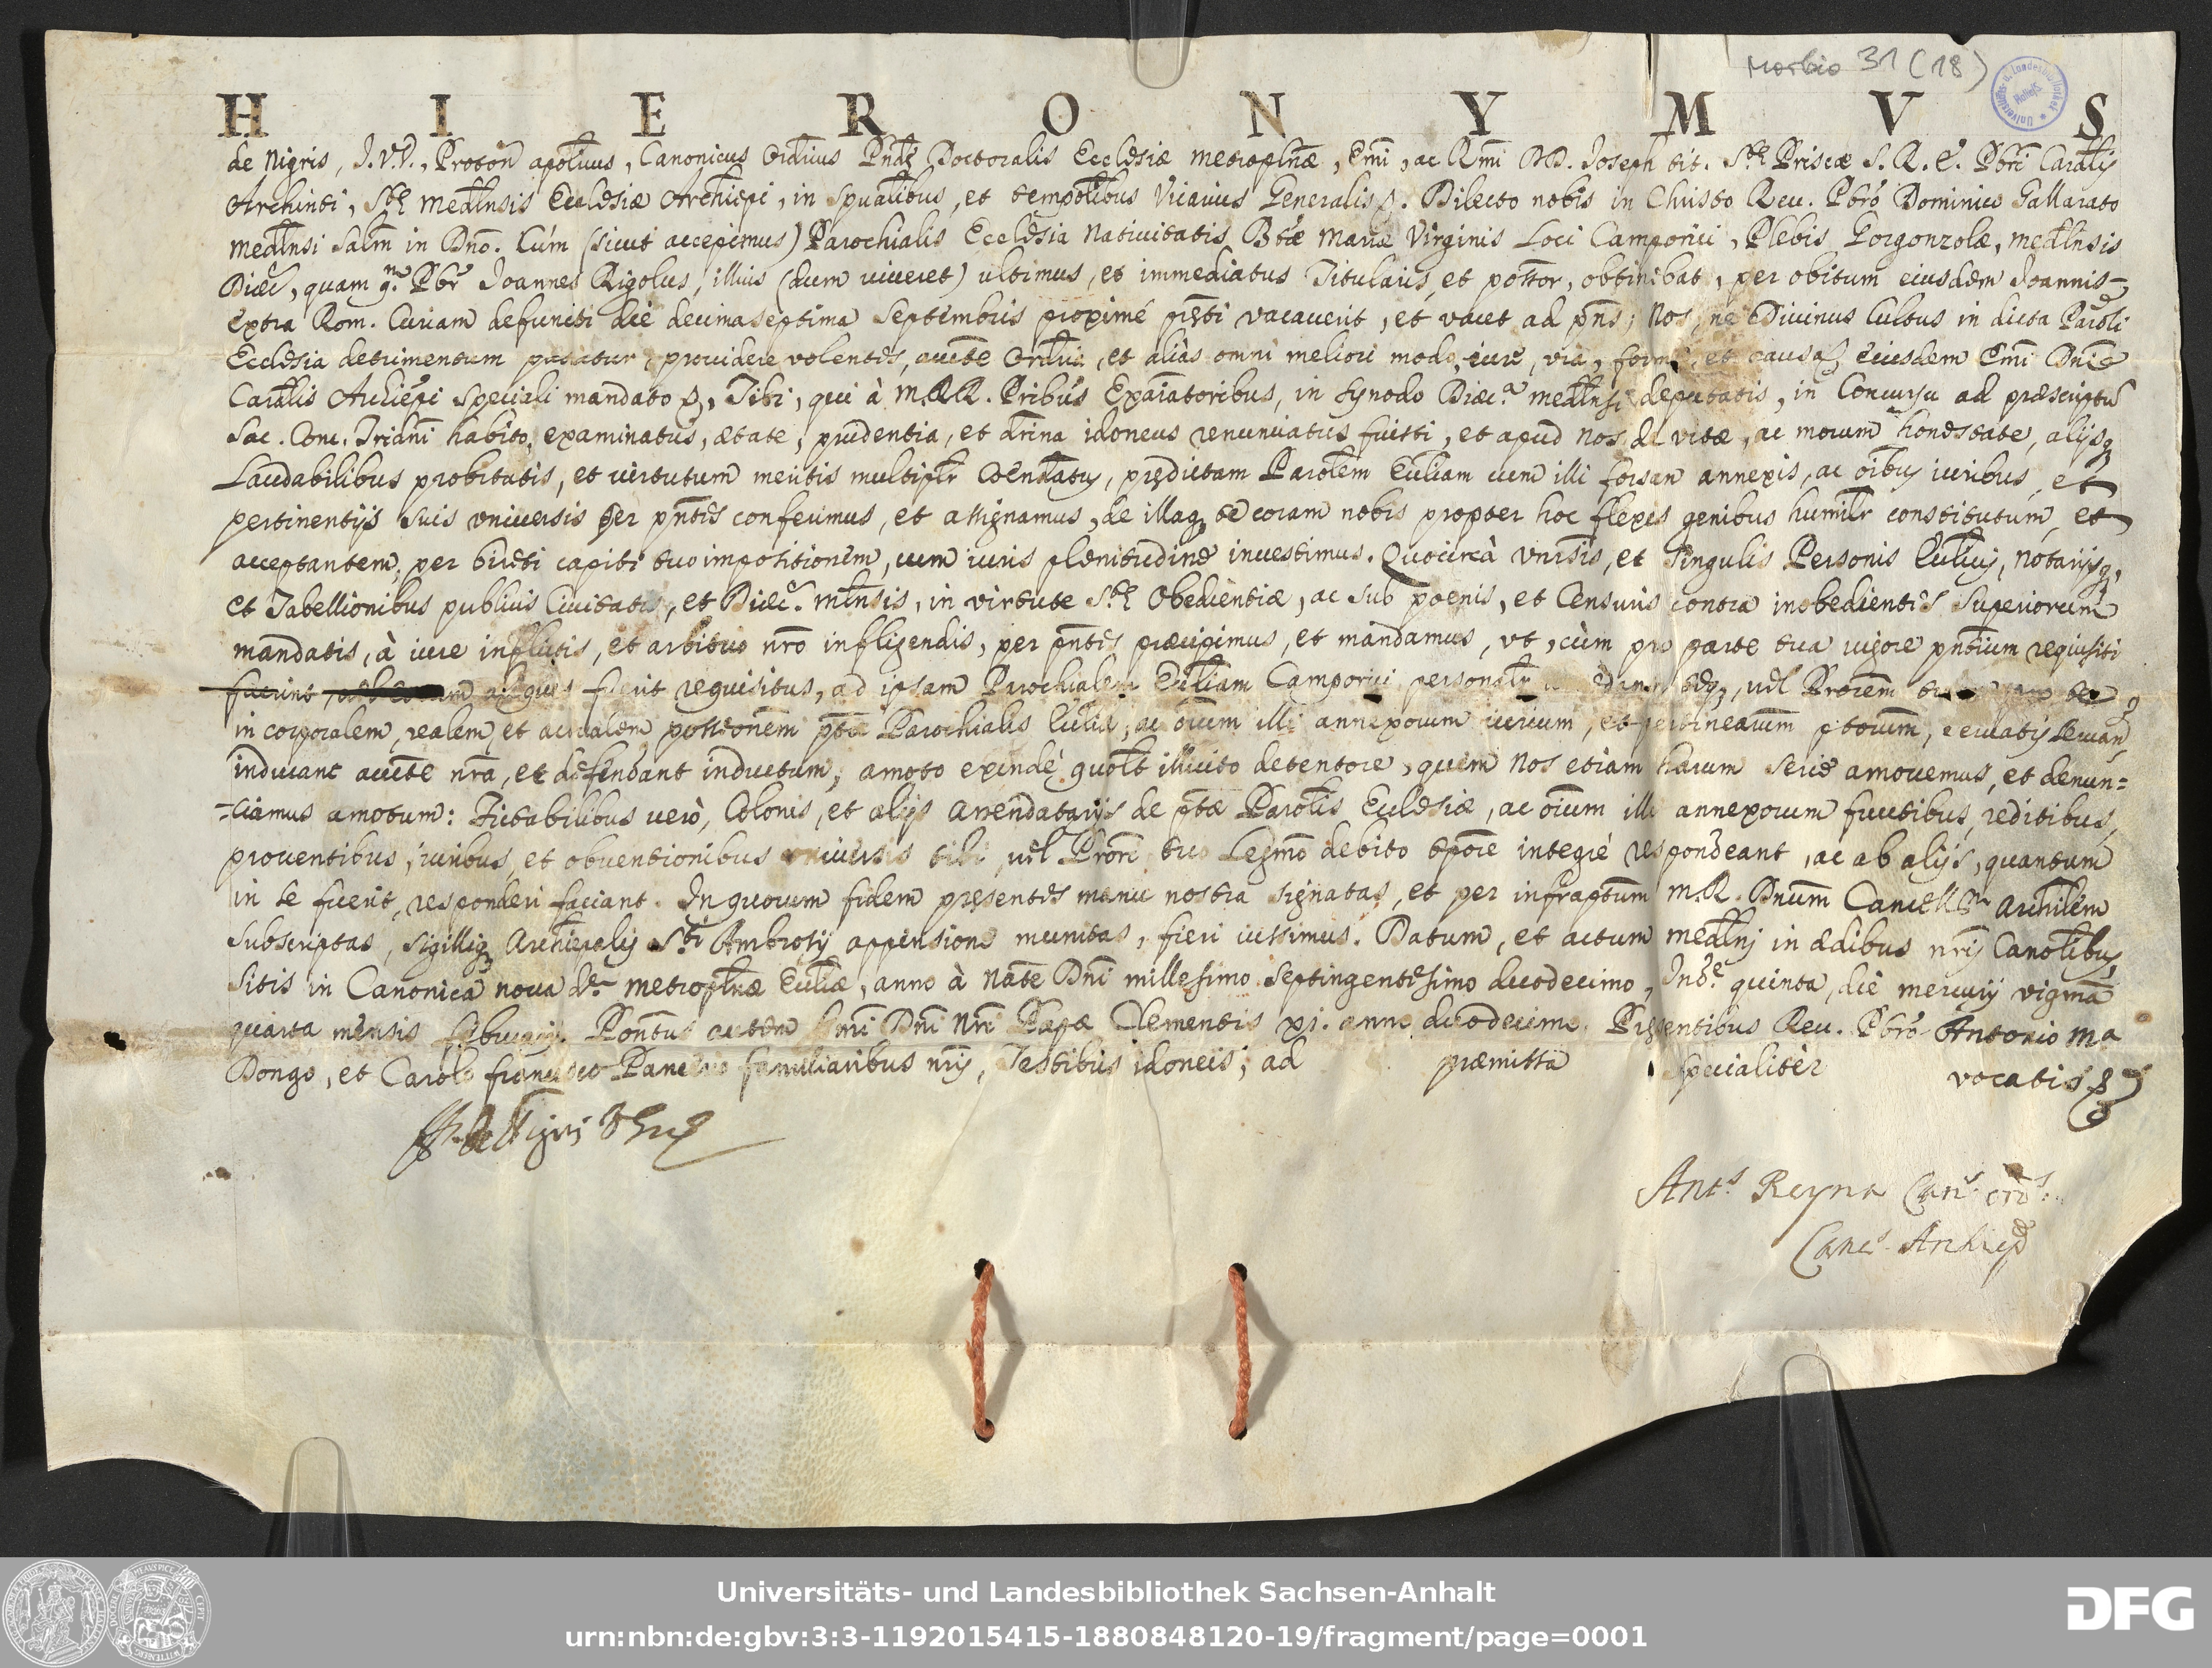 Morbio 31 (18)
HIERONYMVS
de Nigris, J.V.D., Proton apolicus, Canonicus Ordius Doctoralis Ecclesiæ metroplnæ, Emi, ac Rmi DD. Joseph tit. Stę Priscæ S.R.E. Pbri Cardlis
Archinti, Stę Medlnsis Ecclesiæ Archiepi, in spualibus, et tempolibus Vicarius Generalis &. Dilecto nobis in Christo Reu. Pbro Dominico Gallarato
medlnsi salm in Dno. Cum (sicut accepimus) Parochialis Ecclesia Nativitatis Btæ Mariæ Virginis Loci Camporici, Plebis Gorgonzolæ, medlnsis
Diæc, quam qm Pbr Joannes Rigolus, illius (dum viveret) ultimus, et immediatus Titularis, et possor, obtinebat, per obitum eiusdem Joannis
extra Rom. Curiam defuncti die decimaseptima Septembris proximè pręti vacaverit, et vacet ad pns; Nos, ne Divinus Cultus in dicta Paroli
Ecclesia detrimentum patiatur, providere volentes, aucte Ordria, et aliàs omni meliori modo, iure, via, forma, et causa, eiusdem Emi Dni
Cardlis Archiepi speciali mandato &, Tibi, qui à M.RR. Pribus Examinatoribus, in synodo Diæc. medlnsi deputatis, in Concursu ad præscriptu
Sac. Conc. Tridni habito, examinatus, ætate, prudentia, et drina idoneus renunciatus fuisti, et apud nos de vitæ, ac morum honestate, alijsq
Laudabilibus probitatis, et virtutum meritis multiplr coendatus, prędictam Parolem Eccliam cum illi forsan annexis, ac oibus iuribus, et
pertinentijs suis vniversis per pntes conferimus, et assignamus, de illaq te coram nobis propter hoc flexis genibus humilr constitutum, et
acceptantem, per bireti capiti tuo impositionem, cum iuris plenitudine investimus. Quocircà vnrsis, et singulis Personis Ecclicis, Notarijsq,
et Tabellionibus publicis Civitatis, et Diæc. mlnsis, in virtute Stę Obedientiæ, ac sub poenis, et Censuris contra inobedientes Superiorum
mandatis, à iure inflictis, et arbitrio nro infligendis, per pntes præcipimus, et mandamus, vt, cùm pro parte tua vigore pntium requisiti
fuerint fuerit requisitus, ad ipsam Parochialem Eccliam Camporici personalr teq, vel Prorem
in corporalem, realem, et actualem possessionem ptæ Parochialis Eccliæ, ac oium illi annexorum iurium, et pertinearum ptorum, servatis servan
inducant aucte nra, et defendant inductum, amoto exindè quolt illicito detentore, quem nos etiam harum serie amovemus, et denun=
=ciamus amotum: Fictabilibus verò, Colonis, et alijs arrendatarijs de ptæ Parolis Ecclesiæ, ac oium illi annexorum fructibus, reditibus,
proventibus, iuribus, et obventionibus vniversis tibi, vel Prori tuo Legmo debito tpore integrè respondeant, ac ab alijs, quantum
in se fuerit, responderi faciant. In quorum fidem pręsentes manu nostra signatas, et per infraptum M.R. Dnum Cancellm Archilem
subscriptas, sigilliq Archiepalis Sti Ambrosij appensione munitas, fieri iussimus. Datum, et actum medlni in ædibus nris Canolibus,
sitis in Canonica nova dæ metroplnæ Eccliæ, anno à Nate Dni millesimo septingentesimo duodecimo, Indne quinta, die mercurij vigma
quarta mensis februarij. Pontus autem Smi Dni Nri Papæ Clementis xj. anno duodecimo. Pręsentibus Reu. Pbro Antonio Ma
Dongo, et Carolo francisco familiaribus nris, Testibus idoneis; ad præmissa specialiter vocatis &
H. de Nigris
Ants Reyna Cans ords
Cancs Archiep
Universitäts- u. Landesbibliothek Halle/S
Universitäts- und Landesbibliothek Sachsen-Anhalt
urn:nbn:de:gbv:3:3-1192015415-1880848120-19/fragment/page=0001
DFG